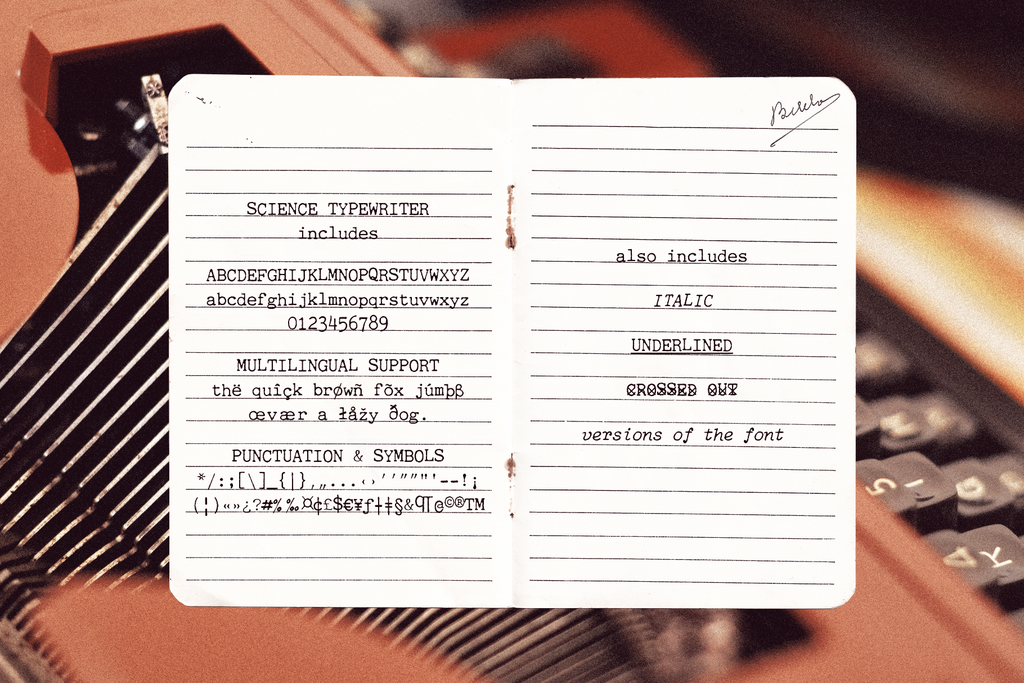 SCIENCE TYPEWRITER
includes
ABCDEFGHIJKLMNOPQRSTUVWXYZ
abcdefghijklmnopqrstuvwxyz
0123456789
MULTILINGUAL SUPPORT
thë quîçk brøwñ fõx júmþß
œvær a łåžy ðog.
PUNCTUATION & SYMBOLS
*/:;[\]_{|}‚„...‹›‘’“”"'–-!¡
(¦)«»¿?#%‰¤¢£$€¥ƒ†‡§&¶@©®TM
also includes
ITALIC
UNDERLINED
CROSSED OUT
versions of the font
5
K